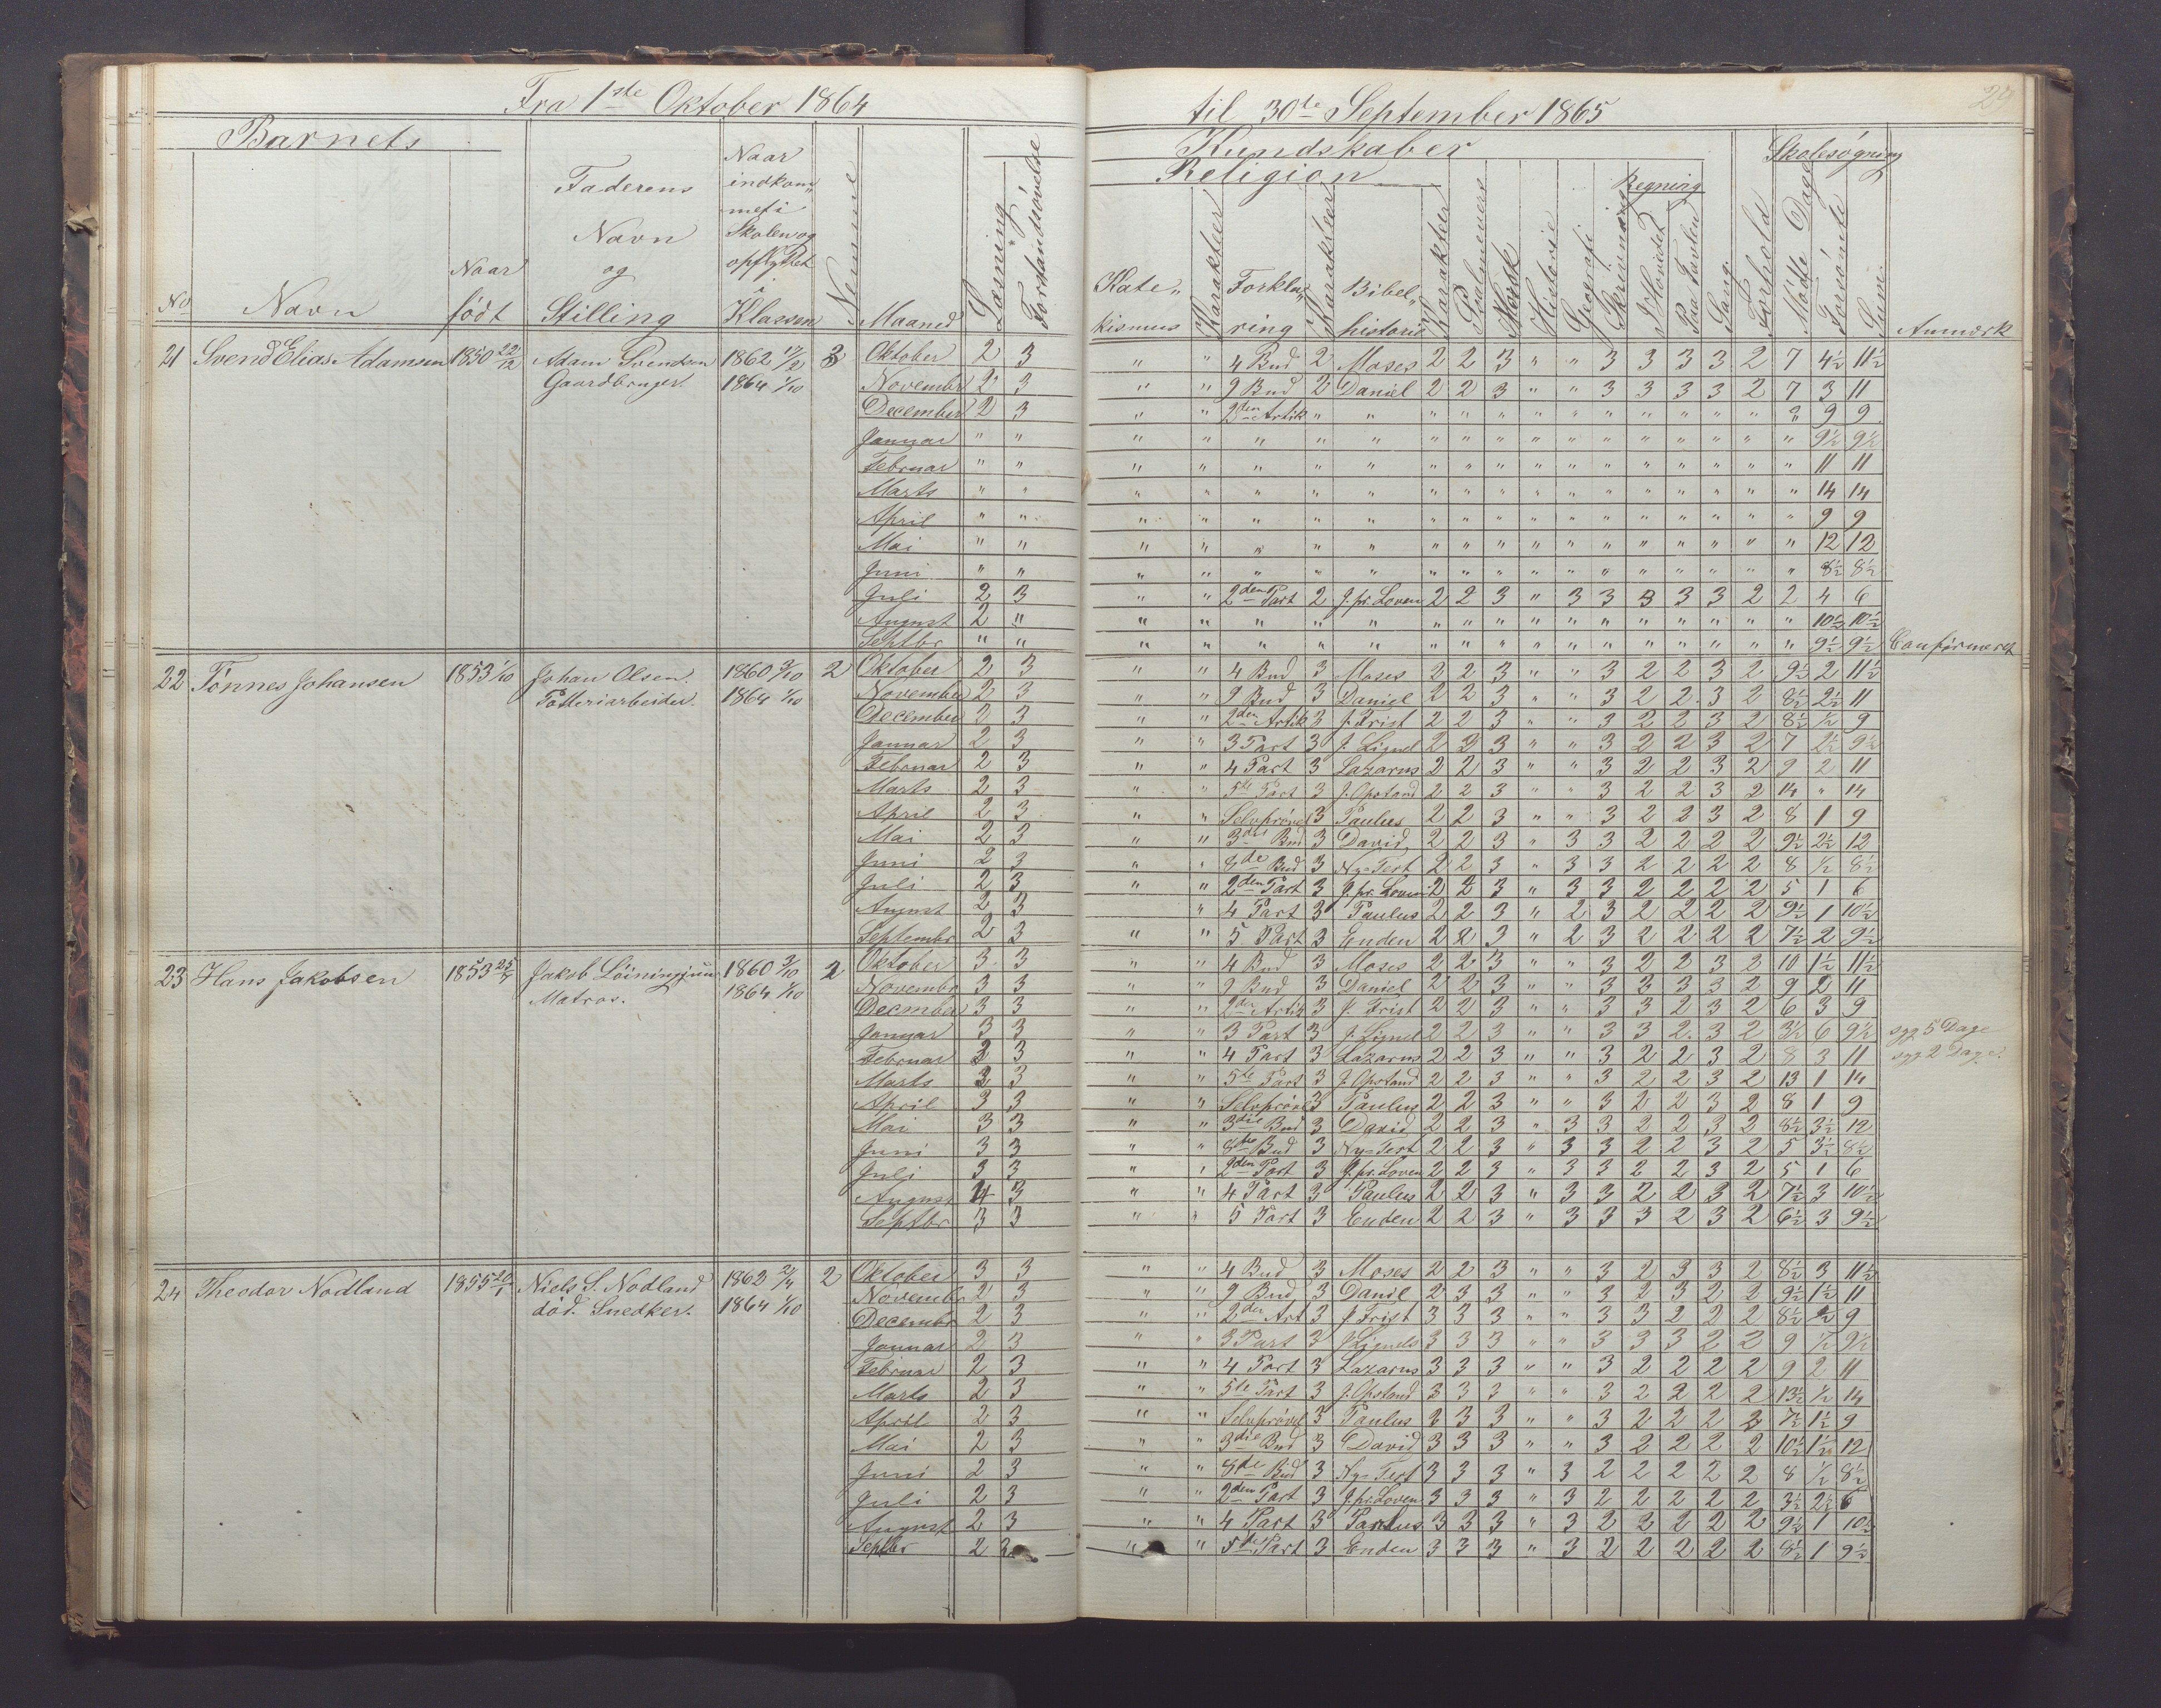 Fra 1ste Oktober 1864 til 30te September 1865
29
Barnets Kundskaber Skolesøgning
Religion Regning
No Navn Naar født Faderens Navn og Stilling Naar indkommet i Skolen og opflyttet i Klassen Nemme Maaned Læsning Forstandsøvelse Katekismus Karakter Forklaring Karakter Bibelhistorie Karakter Psalmevers Norsk Historie Geografi Skrivning I Hovedet Paa Tavlen Sang Forhold Mödte Dage Forsömte Sum Anmærk
21 Svend Elias Adamsen 1850 22/12 Adam Svendsen 1862 17/2 3 Oktober 2 3 " " 4 Bud 2 Moses 2 2 3 " " 3 3 3 3 2 7 4½ 11½
Gaardbruger. 1864 1/10 Novembr 2 3 " " 9 Bud 2 Daniel 2 2 3 " " 3 3 3 3 2 7 3 11
December 2 3 " " 2den Artik " " " " " " " " " " " " " 9 9
Januar " " " " " " " " " " " " " " " " " " 9½ 9½
Februar " " " " " " " " " " " " " " " " " " 11 11
Marts " " " " " " " " " " " " " " " " " " 14 14
April " " " " " " " " " " " " " " " " " " 9 9
Mai " " " " " " " " " " " " " " " " " " 12 12
Juni " " " " " " " " " " " " " " " " " " 8½ 8½
Juli 2 3 " " 2den Part 2 J. pr. Loven 2 2 3 " 3 3 3 3 3 2 2 4 6
August 2 " " " " " " " " " " " " " " " " " 10½ 10½
Septbr " " " " " " " " " " " " " " " " " " 9½ 9½ Confirmeret
22 Tönnes Johansen 1853 1/10 Johan Olsen. 1860 3/10 2 Oktober 2 3 " " 4 Bud 3 Moses 2 2 3 " " 3 2 2 3 2 9½ 2 11½
Potteriarbeider. 1864 1/10 November 2 3 " " 9 Bud 3 Daniel 2 2 3 " " 3 2 2 3 2 8½ 2½ 11
December 2 3 " " 2den Artik 3 J. Frist 2 2 3 " " 3 2 2 3 2 8½ ½ 9
Januar 2 3 " " 3 Part 3 J. Lignel 2 2 3 " " 3 2 2 3 2 7 2½ 9½
Februar 2 3 " " 4 Part 3 Lazarus 2 2 3 " " 3 2 2 3 2 9 2 11
Marts 2 3 " " 5te Part 3 J. Opstand 2 2 3 " " 3 2 2 3 2 14 " 14
April 2 3 " " Selvprövel 3 Paulus 2 2 3 " " 3 2 2 3 2 8 1 9
Mai 2 3 " " 3die Bud 3 David 2 2 3 " 3 3 2 2 2 2 9½ 2½ 12
Juni 2 3 " " 8de Bud 3 Ny-Test 2 2 3 " 3 3 2 2 2 2 8 ½ 8½
Juli 2 3 " " 2den Part 3 J. pr. Loven 2 2 3 " 3 3 2 2 2 2 5 1 6
August 2 3 " 4 Part 3 Paulus 2 2 3 " 2 3 2 2 2 2 9½ 1 10½
Septembr 2 3 " " 5 Part 3 Enden 2 2 3 " 2 3 2 2 2 2 7½ 2 9½
23 Hans Jakobsen 1853 25/7 Jakob 1860 3/10 2 Oktober 3 3 " " 4 Bud 3 Moses 2 2 3 " " 3 2 2 3 2 10 1½ 11½
Matros. 1864 1/10 Novembr 3 3 " " 9 Bud 3 Daniel 2 2 3 " " 3 3 3 3 2 9 2 11
Decmber 3 3 " " 2den Artik 3 J. Frist 2 2 3 " " 3 3 2 3 2 6 3 9
Januar 3 3 " " 3 Part 3 J. Lignel 2 2 3 " " 3 3 2 3 2 3½ 6 9½ syg 5 Dage
Februar 3 3 " " 4 Part 3 Lazarus 2 2 3 " " 3 2 2 3 2 8 3 11 syg 2 Dage.
Marts 3 3 " " 5te Part 3 J. Opstand 2 2 3 " " 3 2 2 3 2 13 1 14
April 3 3 " " Selvprövel 3 Paulus 2 2 3 " " 3 2 2 3 2 8 1 9
Mai 3 3 " " 3die Bud 3 David 2 2 3 " 3 3 2 2 3 2 8½ 3½ 12
Juni 3 3 " " 8de Bud 3 Ny-Test 2 2 3 " 3 3 2 2 3 2 5 3½ 8½
Juli 3 3 " " 2den Part 3 J. pr. Loven 2 2 3 " 3 3 2 2 3 2 5 1 6
August 4 3 " " 4 Part 3 Paulus 2 2 3 " 3 3 2 2 3 2 7½ 3 10½
Septbr 3 3 " " 5 Part 3 Enden 2 2 3 " 3 3 3 2 3 2 6½ 3 9½
24 Theodor Nodland 1855 20/1 Niels S. Nodland 1862 2 Oktober 3 3 " " 4 Bud 3 Moses 2 2 3 " " 3 2 3 3 2 8½ 3 11½
död. Snedker. 1864 1/10 November 2 3 " " 9 Bud 3 Daniel 2 3 3 " " 3 2 3 2 2 9½ 1½ 11
Decembr 2 3 " " 2den Art 3 J. Frist 3 3 3 " " 3 3 2 2 2 8½ ½ 9
Januar 2 3 " " 3 Part 3 J. Lignels 3 3 3 " " 3 3 3 2 2 9 ½ 9½
Februar 2 3 " " 4 Part 3 Lazarus 3 3 3 " " 3 2 2 2 2 9 2 11
Marts 2 3 " " 5te Part 3 J. Opstand 3 3 3 " " 3 2 2 2 2 13½ ½ 14
April 2 3 " " Selvprövel 3 Paulus 3 3 3 " " 3 2 2 2 2 7½ 1½ 9
Mai 2 3 " " 3die Bud 3 David 3 3 3 " " 3 2 2 2 2 10½ 1½ 12
Juni 2 3 " " 8de Bud 3 Ny-Test 3 3 3 " 3 2 2 2 2 2 8 ½ 8½
Juli 2 3 " " 2den Part 3 J. pr. Loven 3 3 3 " 3 2 2 2 2 2 3½ 2½ 6
August 2 3 " " 4 Part 3 Paulus 3 3 3 " 3 2 2 2 2 2 9½ 1 10½
Septbr 2 3 " " 5te Part 3 Enden 3 3 3 " 3 2 2 2 2 2 8½ 1 9½